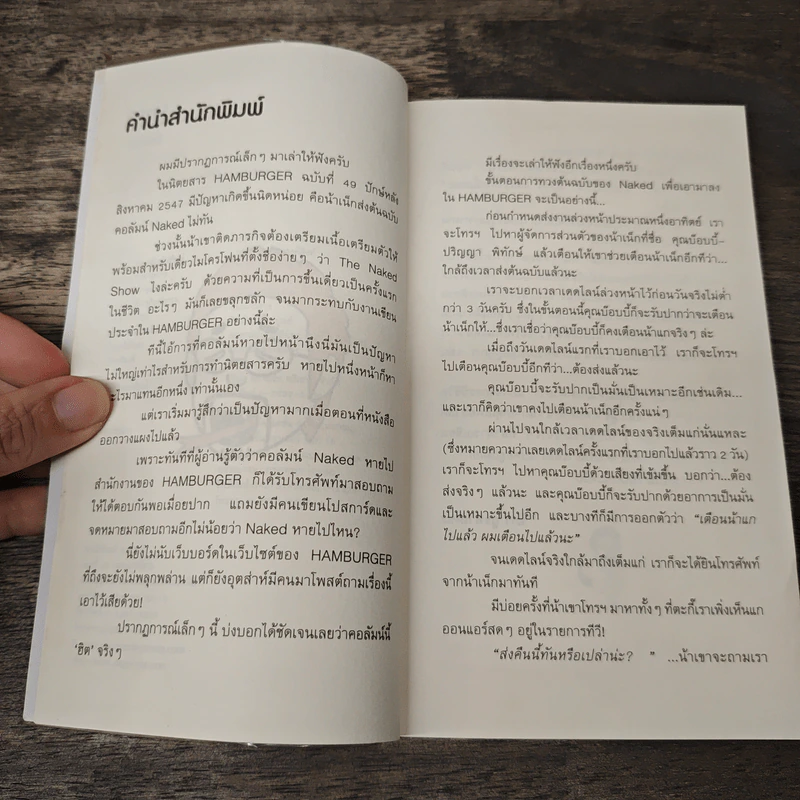 คำนำสำนักพิมพ์
ผมมีปรากฏการณ์เล็กๆ มาเล่าให้ฟังครับ
ในนิตยสาร HAMBURGER ฉบับที่ 49 ปักษ์หลัง
สิงหาคม 2547 มีปัญหาเกิดขึ้นนิดหน่อย คือน้าเน็กส่งต้นฉบับ
คอลัมน์ Naked ไม่ทัน
ช่วงนั้นน้าเขาติดภารกิจต้องเตรียมเนื้อเตรียมตัวให้
พร้อมสำหรับเดี่ยวไมโครโฟนที่ตั้งชื่อง่ายๆ ว่า The Naked
Show ไงล่ะครับ ด้วยความที่เป็นการขึ้นเดี่ยวเป็นครั้งแรก
ในชีวิต อะไรๆ มันก็เลยขลุกขลัก จนมากระทบกับงานเขียน
ประจำใน HAMBURGER อย่างนี้ล่ะ
ทีนี้ไอ้การที่คอลัมน์หายไปหน้านึงนี่มันเป็นปัญหา
ไม่ใหญ่เท่าไรสำหรับการทำนิตยสารครับ หายไปหนึ่งหน้าก็หา
อะไรมาแทนอีกหนึ่ง เท่านั้นเอง
แต่เราเริ่มมารู้สึกว่าเป็นปัญหามากเมื่อตอนที่หนังสือ
ออกวางแผงไปแล้ว
เพราะทันทีที่ผู้อ่านรู้ตัวว่าคอลัมน์ Naked หายไป
สำนักงานของ HAMBURGER ก็ได้รับโทรศัพท์มาสอบถาม
ให้ได้ตอบกันพอเมื่อยปาก แถมยังมีคนเขียนโปสการ์ดและ
จดหมายมาสอบถามอีกไม่น้อยว่า Naked หายไปไหน?
นี่ยังไม่นับเว็บบอร์ดในเว็บไซต์ของ HAMBURGER
ที่ถึงจะยังไม่พลุกพล่าน แต่ก็ยังอุตส่าห์มีคนมาโพสต์ถามเรื่องนี้
เอาไว้เสียด้วย!
ปรากฏการณ์เล็กๆ นี้ บ่งบอกได้ชัดเจนเลยว่าคอลัมน์นี้
‘ฮิต’ จริงๆ
มีเรื่องจะเล่าให้ฟังอีกเรื่องหนึ่งครับ
ขั้นตอนการทวงต้นฉบับของ Naked เพื่อเอามาลง
ใน HAMBURGER จะเป็นอย่างนี้...
ก่อนกำหนดส่งงานล่วงหน้าประมาณหนึ่งอาทิตย์ เรา
จะโทรฯ ไปหาผู้จัดการส่วนตัวของน้าเน็กที่ชื่อ คุณบ๊อบบี้-
ปริญญา พิทักษ์ แล้วเตือนให้เขาช่วยเตือนน้าเน็กอีกทีว่า...
ใกล้ถึงเวลาส่งต้นฉบับแล้วนะ
เราจะบอกเวลาเดดไลน์ล่วงหน้าไว้ก่อนวันจริงไม่ต่ำ
กว่า 3 วันครับ ซึ่งในขั้นตอนนี้คุณบ๊อบบี้ก็จะรับปากว่าจะเตือน
น้าเน็กให้...ซึ่งเราเชื่อว่าคุณบ๊อบบี้ก็คงเตือนน้าแกจริงๆ ล่ะ
เมื่อถึงวันเดดไลน์แรกที่เราบอกเอาไว้ เราก็จะโทรฯ
ไปเตือนคุณบ๊อบบี้อีกทีว่า...ต้องส่งแล้วนะ
คุณบ๊อบบี้ก็จะรับปากเป็นมั่นเป็นเหมาะอีกเช่นเดิม...
และเราก็คิดว่าเขาคงไปเตือนน้าเน็กอีกครั้งแน่ๆ
ผ่านไปจนใกล้เวลาเดดไลน์ของจริงเต็มแก่นั่นแหละ
(ซึ่งหมายความว่าเลยเดดไลน์ครั้งแรกที่เราบอกไปแล้วราว 2 วัน)
เราก็จะโทรฯ ไปหาคุณบ๊อบบี้ด้วยเสียงที่เข้มขึ้น บอกว่า...ต้อง
ส่งจริงๆ แล้วนะ และคุณบ๊อบบี้ก็จะรับปากด้วยอาการเป็นมั่น
เป็นเหมาะขึ้นไปอีก และบางทีก็มีการออกตัวว่า “เตือนน้าแก
ไปแล้ว ผมเตือนไปแล้วนะ”
จนเดดไลน์จริงใกล้มาถึงเต็มแก่ เราก็จะได้ยินโทรศัพท์
จากน้าเน็กมาทันที
มีบ่อยครั้งที่น้าเขาโทรฯ มาหาทั้งๆ ที่ตะกี้เราเพิ่งเห็นแก
ออนแอร์สดๆ อยู่ในรายการทีวี!
“ส่งคืนนี้ทันหรือเปล่าน่ะ? ” ...น้าเขาจะถามเรา